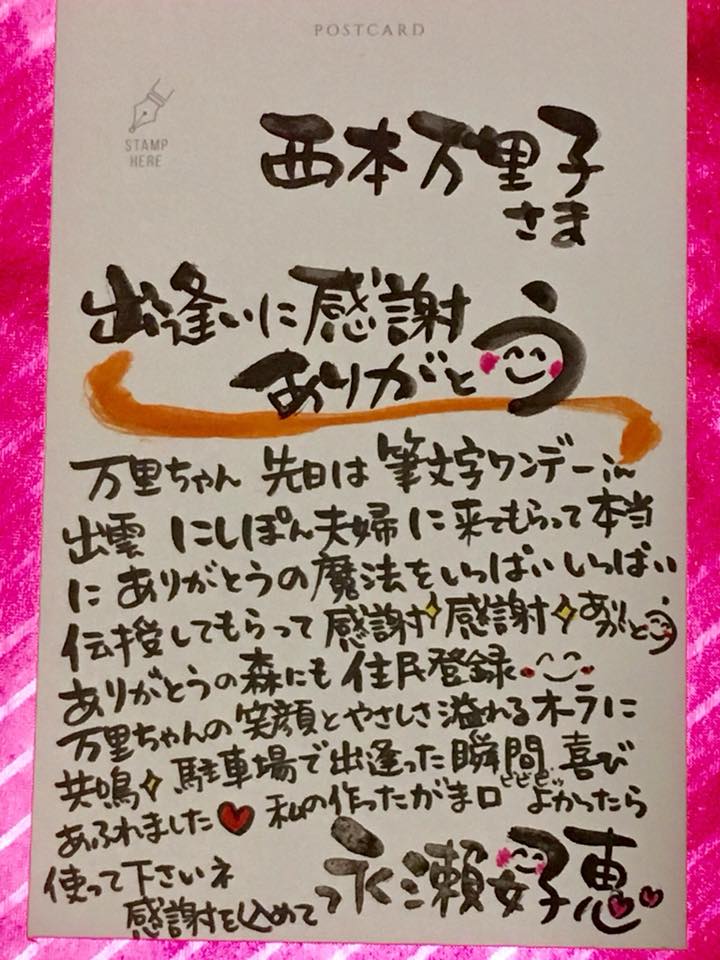 POSTCARD
STAMP
HERE
西本万里子
さま
出逢いに感謝
ありがとう
万里ちゃん 先日は 筆文字ワンデーin
出雲 にしぽん夫婦に来てもらって本当
に ありがとうの魔法をいっぱいいっぱい
伝授してもらって 感謝 感謝 ありがとう
ありがとうの森にも 住民登録
万里ちゃんの笑顔とやさしさ溢れるオーラに
共鳴 駐車場で出逢った瞬間 喜び
ビビビッ
あふれました 私の作ったがま口 よかったら
使って下さいネ
感謝を込めて 永瀬好恵